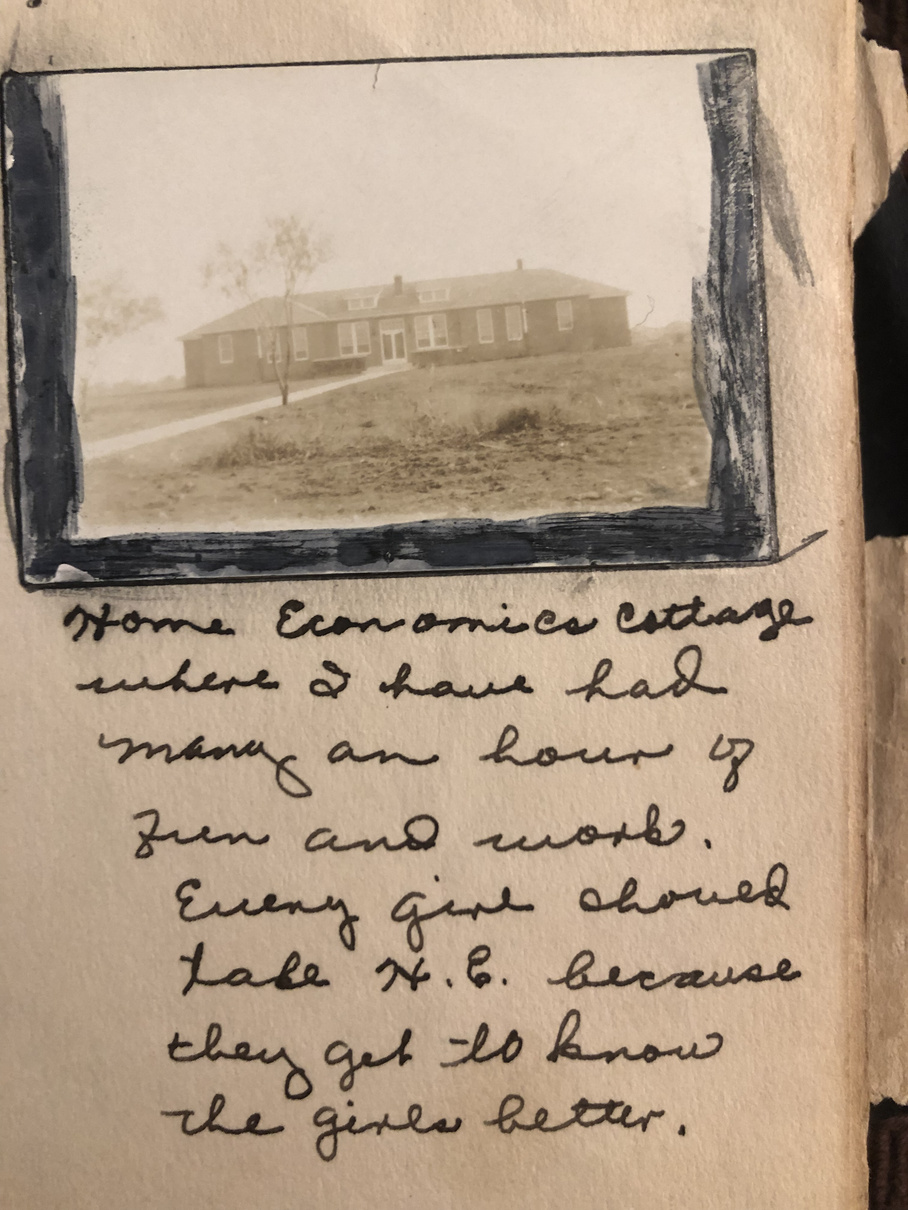 Home Economics Cottage
where I have had
many an hour of
fun and work.
Every girl should
take H.E. because
they get to know
the girls better.